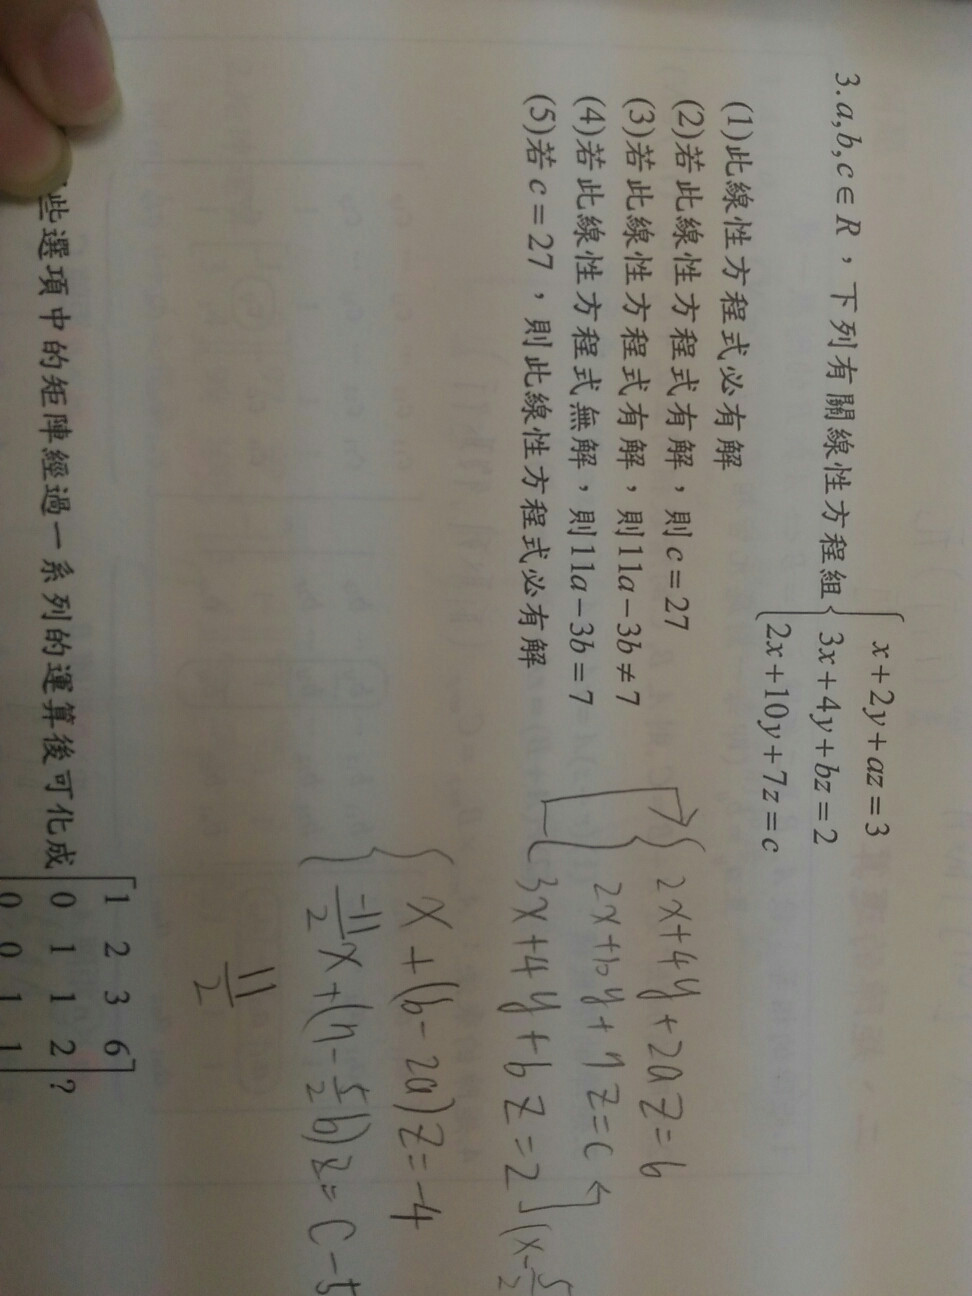 3. a, b, c ∈ R，下列有關線性方程組
x+2y+az=3
3x+4y+bz=2
2x+10y+7z=c
(1)此線性方程式必有解
(2)若此線性方程式有解，則c=27
(3)若此線性方程式有解，則11a−3b≠7
(4)若此線性方程式無解，則11a−3b=7
(5)若c=27，則此線性方程式必有解
2x+4y+2az=6
2x+10y+7z=c
3x+4y+bz=2
x+(b-2a)z=-4
-11/2 x+(7-5/2 b)z=c-5
11/2
些選項中的矩陣經過一系列的運算後可化成
1 2 3 6
0 1 1 2 ?
0 0 1 1